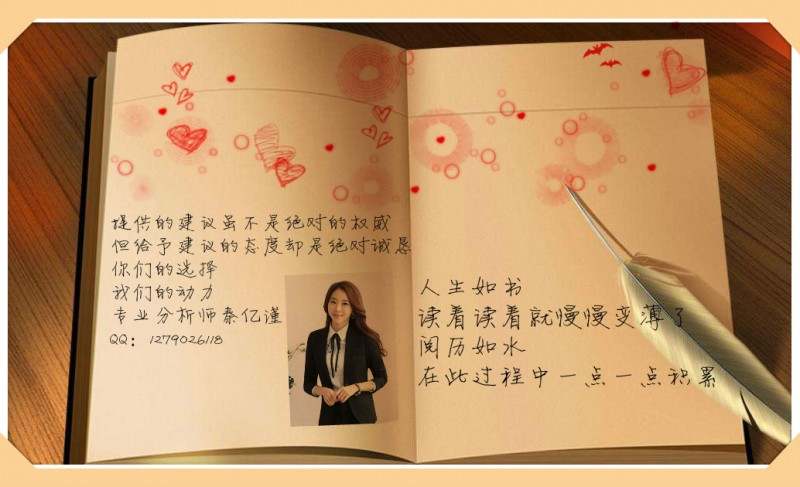 提供的建议虽不是绝对的权威
但给予建议的态度却是绝对诚恳
你们的选择
我们的动力
专业分析师秦亿谨
QQ：1279026118
人生如书
读着读着就慢慢变薄了
阅历如水
在此过程中一点一点积累